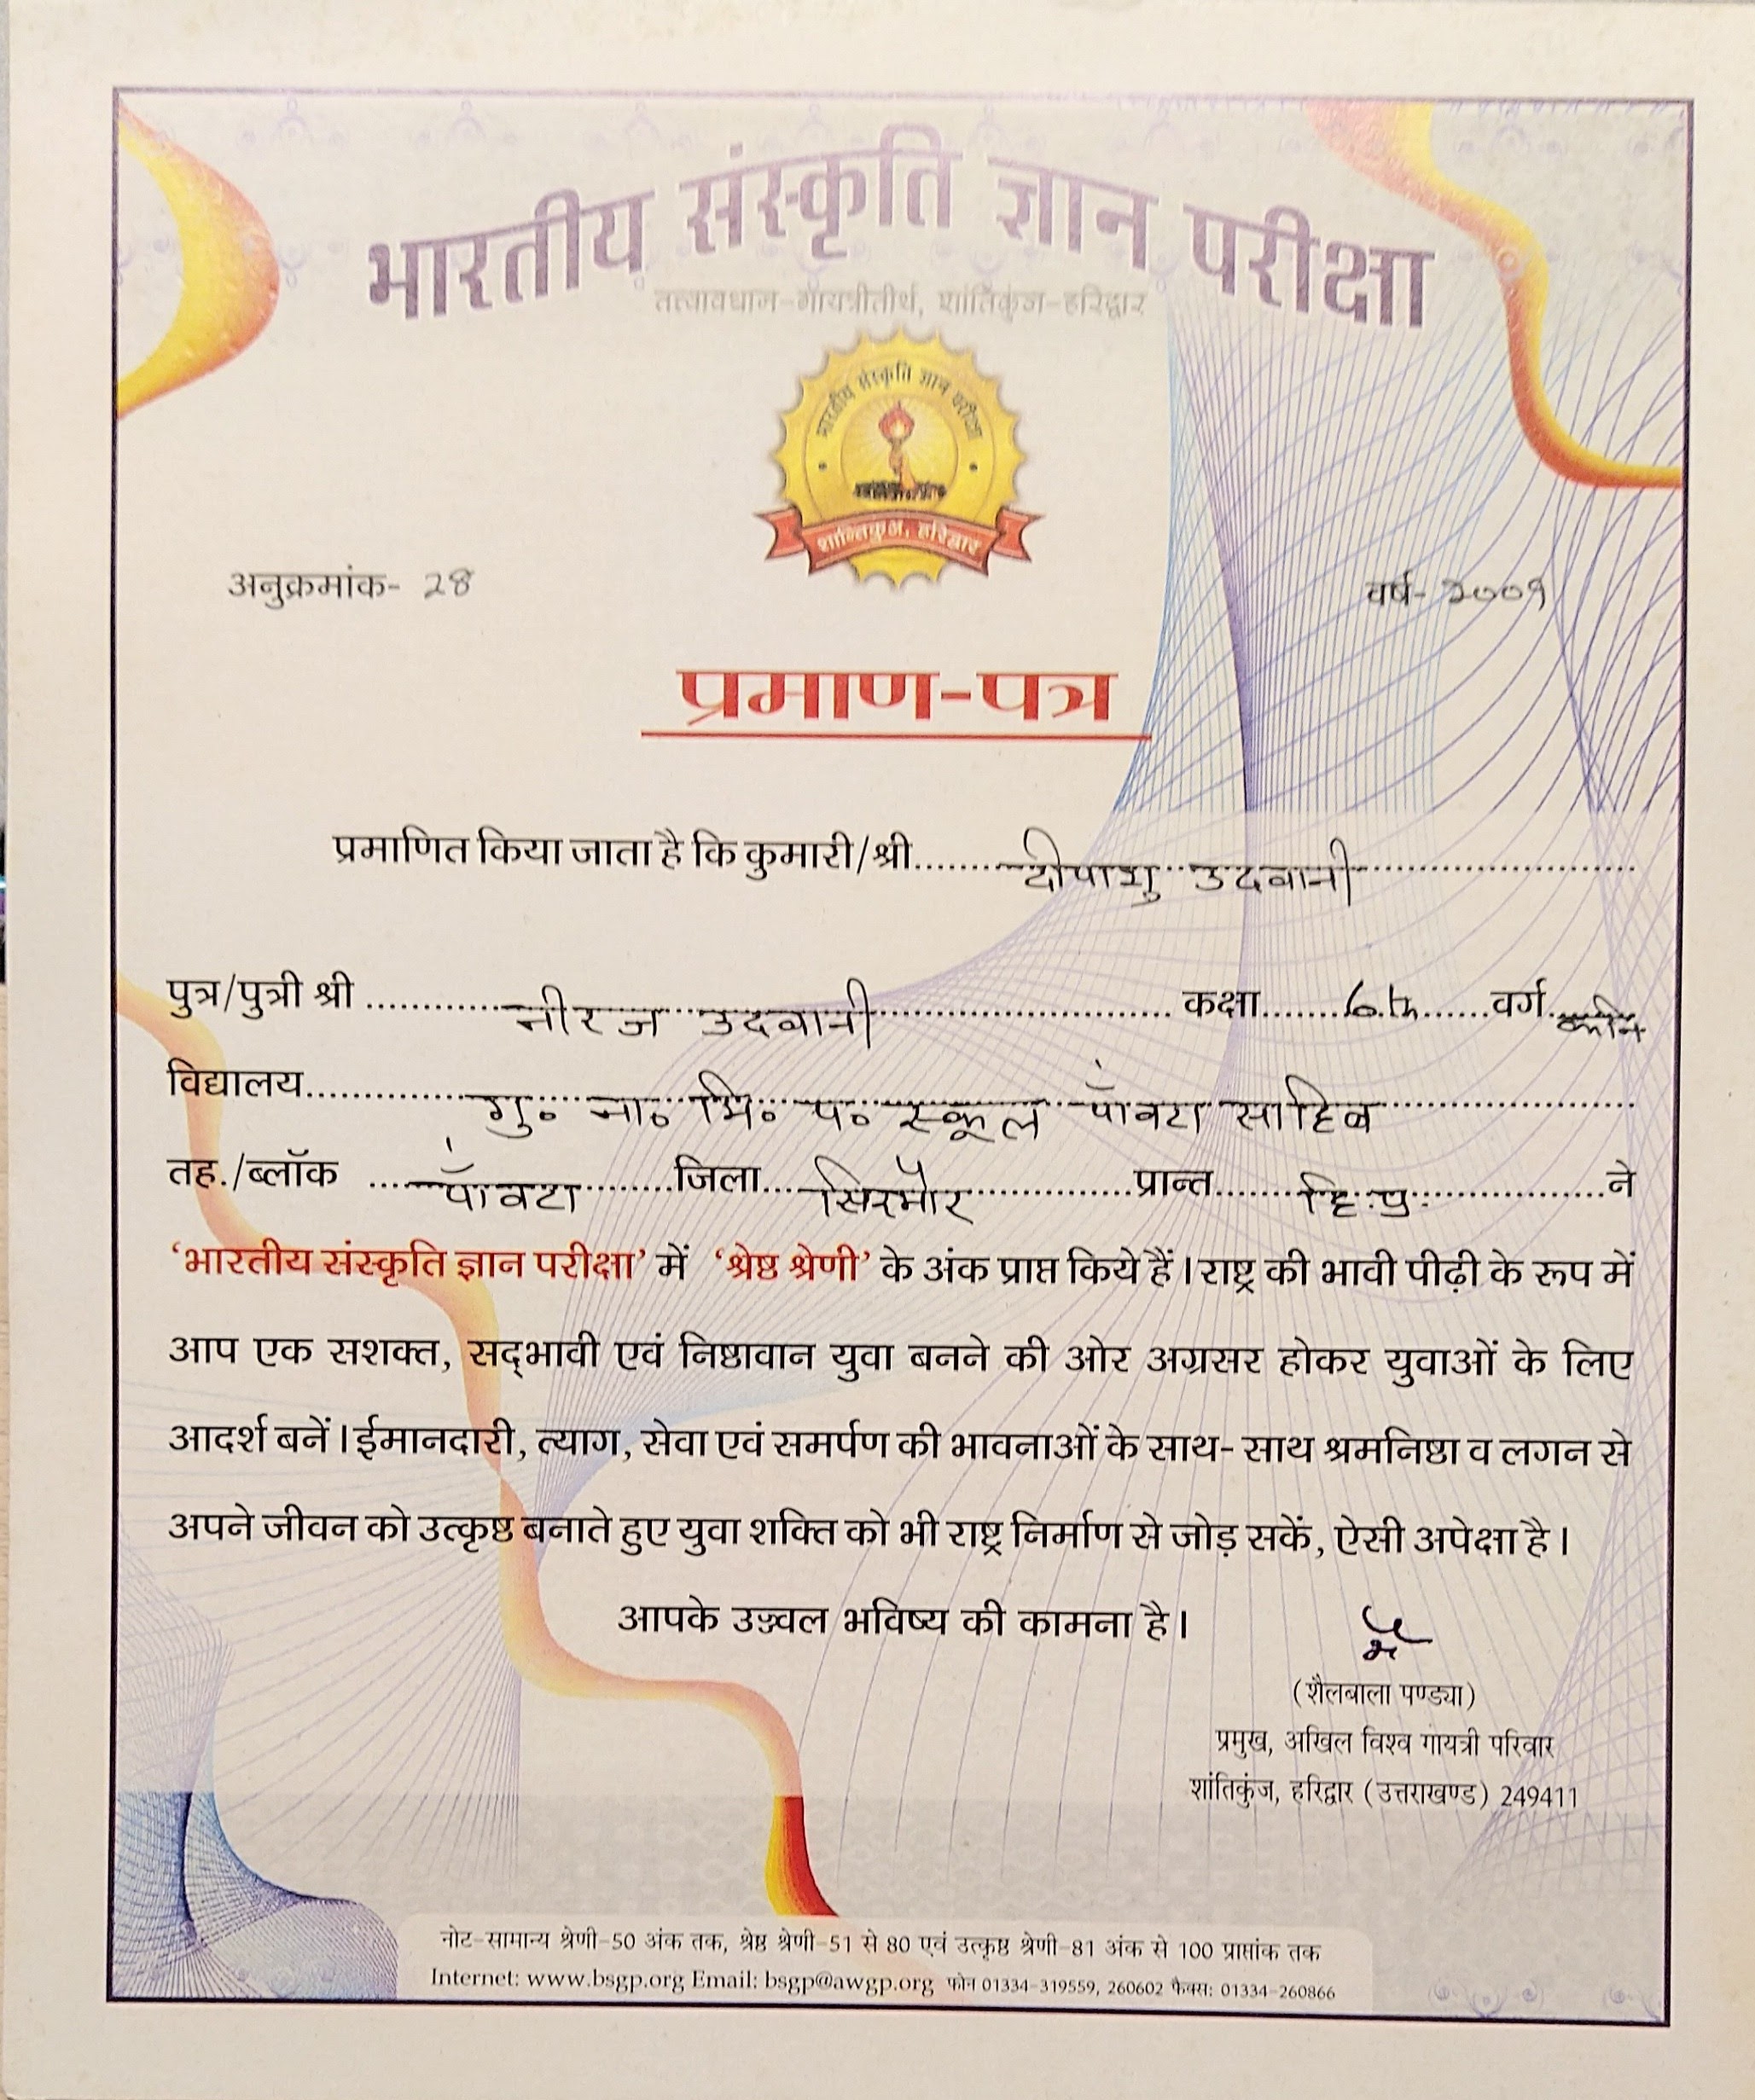 भारतीय संस्कृति ज्ञान परीक्षा
तत्वावधान-गायत्रीतीर्थ, शांतिकुंज-हरिद्वार
भारतीय संस्कृति ज्ञान परीक्षा
शान्तिकुञ्ज, हरिद्वार
अनुक्रमांक- 28 वर्ष- 2009
प्रमाण-पत्र
प्रमाणित किया जाता है कि कुमारी/श्री........दीपाशु उदवानी
पुत्र/पुत्री श्री ........नीरज उदवानी........ कक्षा.......6th......वर्ग.
विद्यालय........गु॰ ना॰ मि॰ प॰ स्कूल पाँवटा साहिब
तह./ब्लॉक ......पाँवटा........जिला....सिरमौर............प्रान्त.......हि.प्र.............ने
‘भारतीय संस्कृति ज्ञान परीक्षा’ में ‘श्रेष्ठ श्रेणी’ के अंक प्राप्त किये हैं। राष्ट्र की भावी पीढ़ी के रूप में
आप एक सशक्त, सद्‌भावी एवं निष्ठावान युवा बनने की ओर अग्रसर होकर युवाओं के लिए
आदर्श बनें। ईमानदारी, त्याग, सेवा एवं समर्पण की भावनाओं के साथ- साथ श्रमनिष्ठा व लगन से
अपने जीवन को उत्कृष्ठ बनाते हुए युवा शक्ति को भी राष्ट्र निर्माण से जोड़ सकें, ऐसी अपेक्षा है।
आपके उज्ज्वल भविष्य की कामना है।
(शैलबाला पण्ड्या)
प्रमुख, अखिल विश्व गायत्री परिवार
शांतिकुंज, हरिद्वार (उत्तराखण्ड) 249411
नोट-सामान्य श्रेणी-50 अंक तक, श्रेष्ठ श्रेणी-51 से 80 एवं उत्कृष्ठ श्रेणी-81 अंक से 100 प्राप्तांक तक
Internet: www.bsgp.org Email: bsgp@awgp.org फोन 01334-319559, 260602 फैक्स: 01334-260866